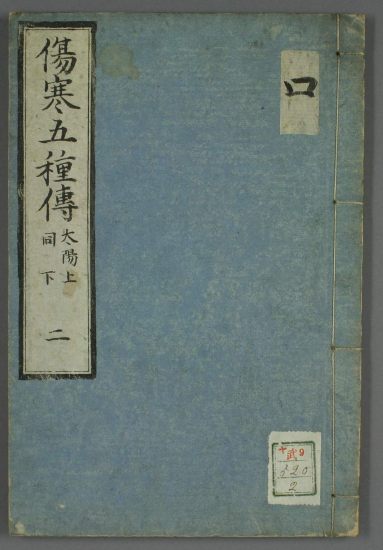 口
傷寒五種傳
太陽上
同 下
二
武
820
2